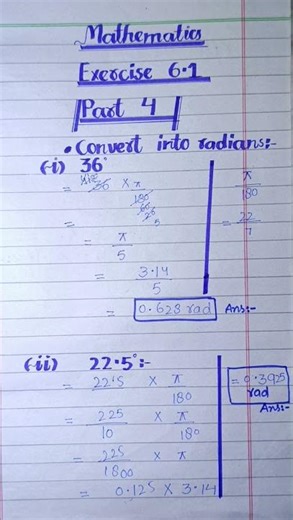 Mathematics
Exercise 6.1
Part 4
• Convert into radians:-
(i) 36°
= 36 × π / 180
=
= π / 5
= 3.14 / 5
= 0.628 rad Ans:-
π / 180
= 22 / 7
(ii) 22.5°:-
= 22.5 × π / 180
= 225 / 10 × π / 180
= 225 / 1800 × π
= 0.125 × 3.14
= 0.3925
rad
Ans:-